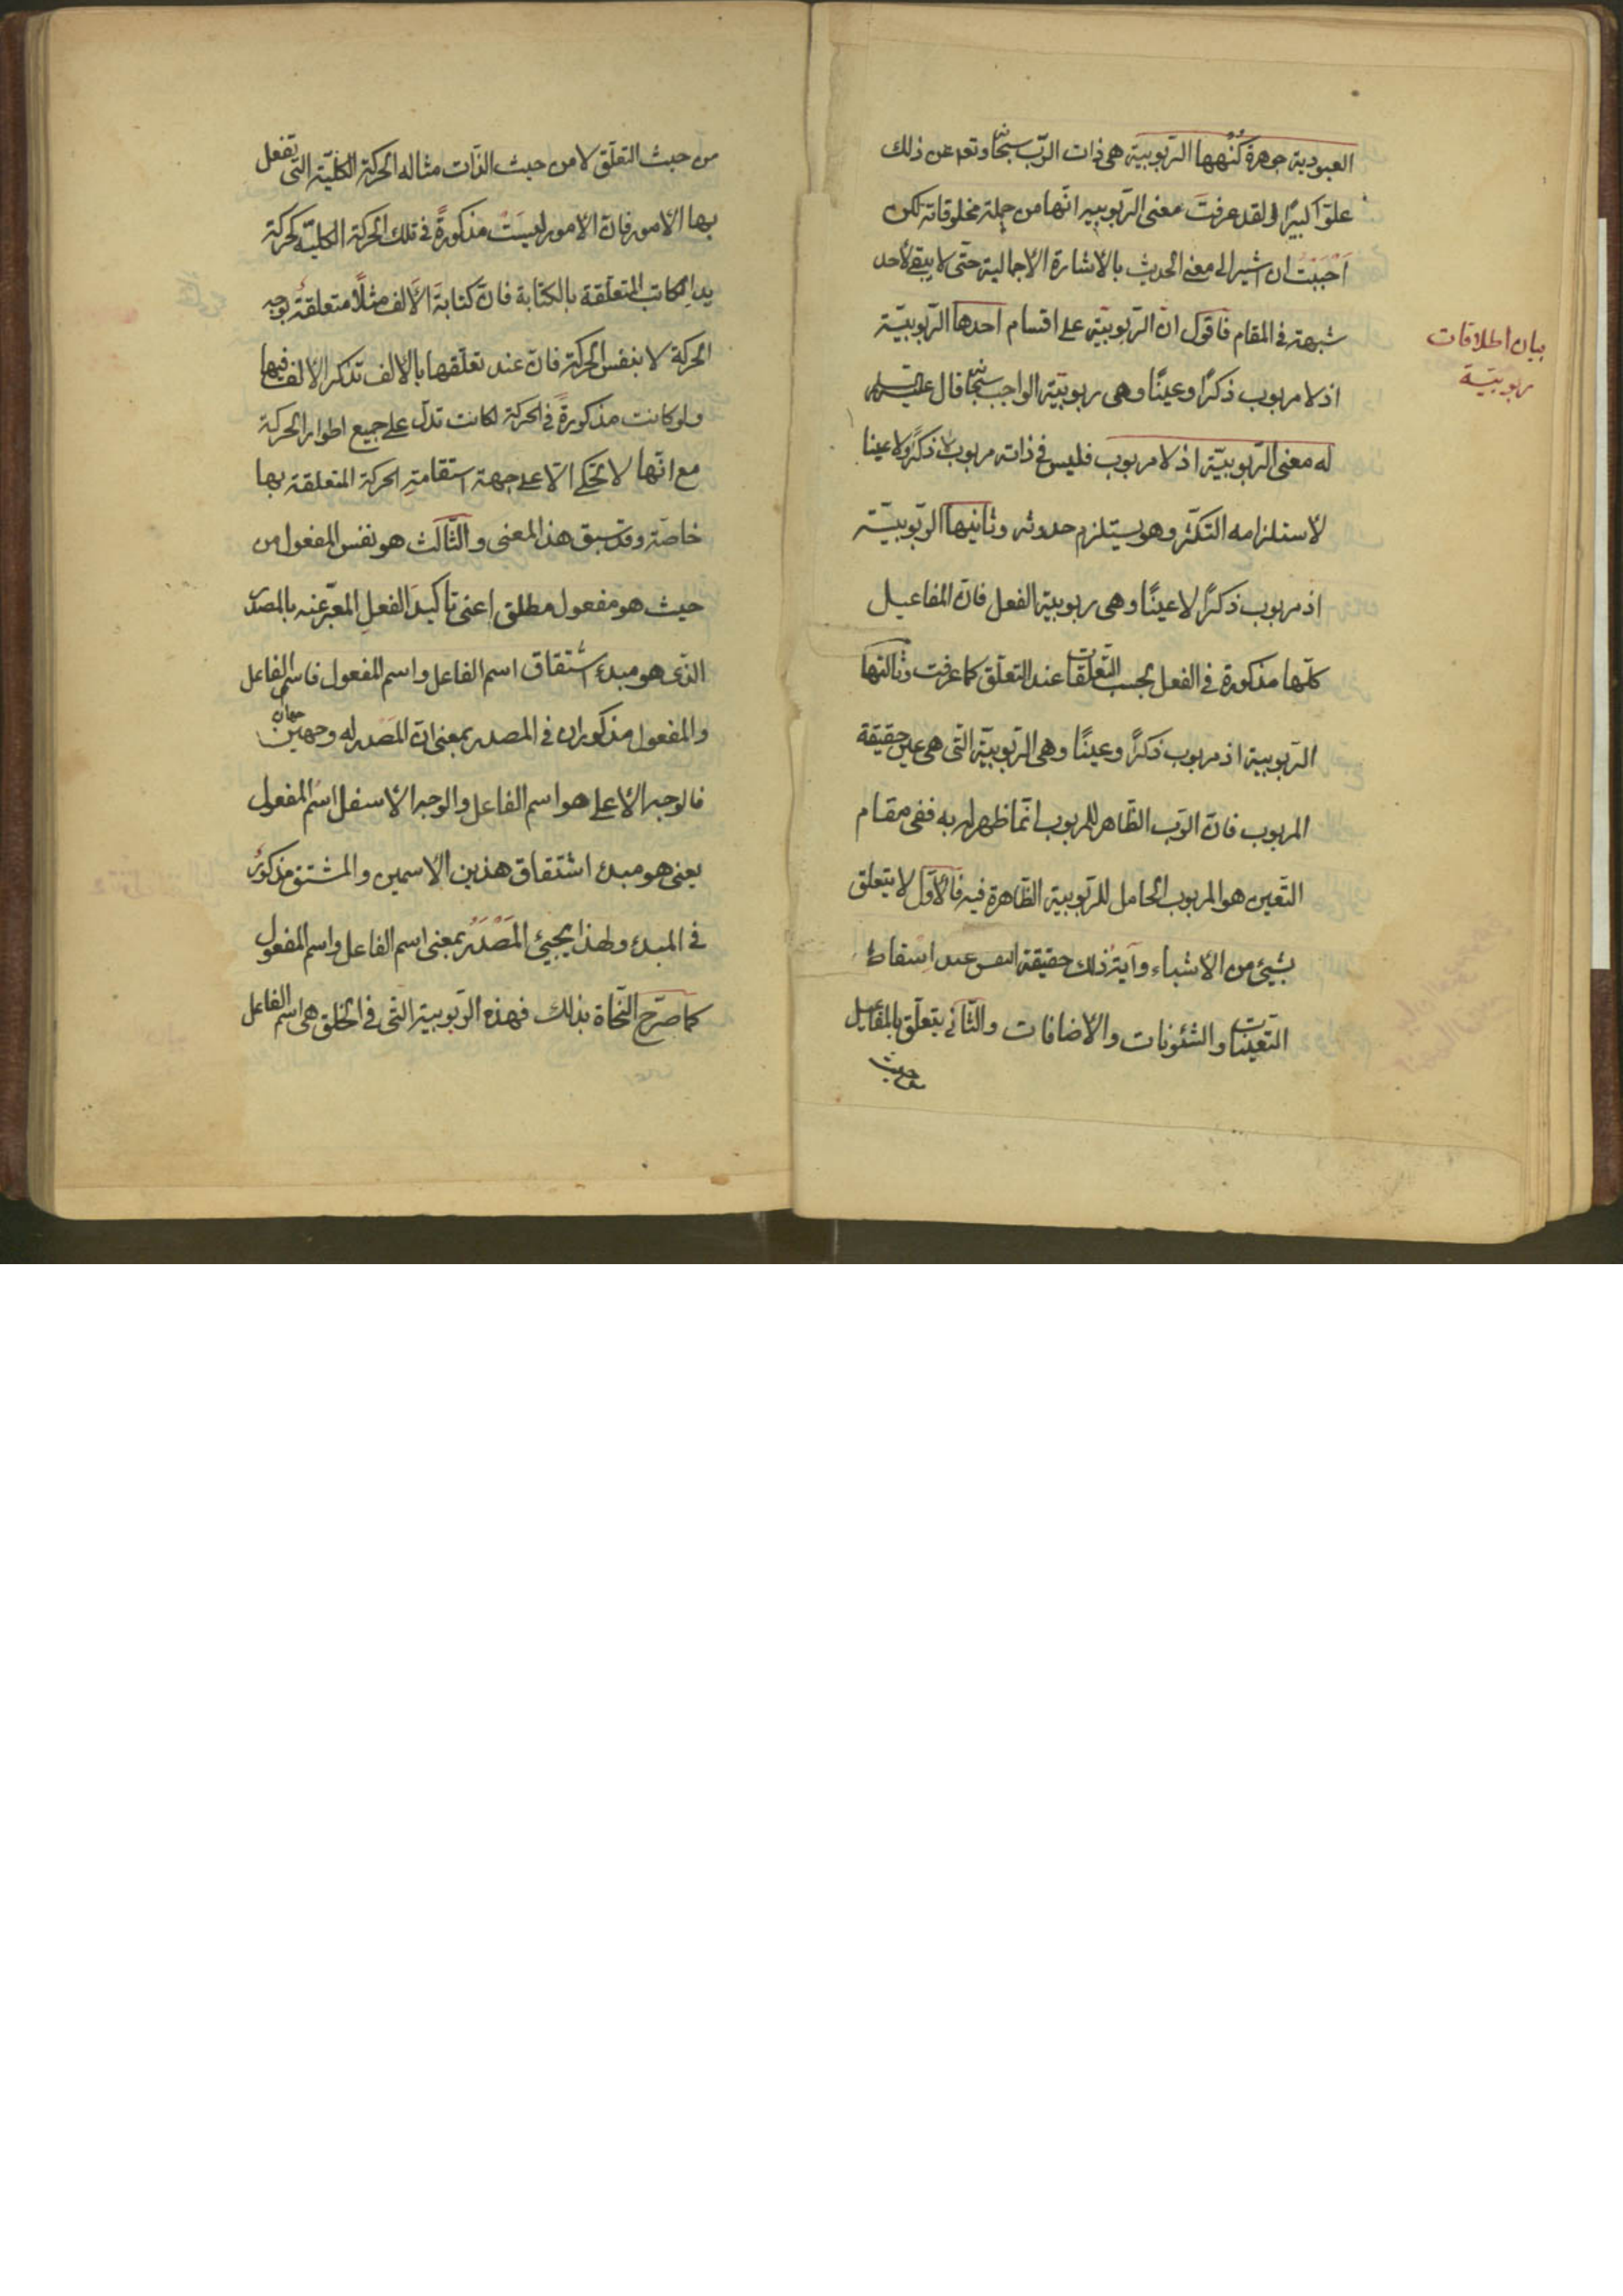 العبودية جوهرة كُنْهها الربوبيّة هى ذات الربّ سبحانه وتعه عن ذلك
علوّا كبيرًا ولقد عرفتَ معنى الربوبيّة انّها من جملة مخلوقاته لكن
اَحْبَبْتُ ان اشير الى معنى الحديث بالاشارة الاجمالية حتّى لا يبقى لأحد
شبهة فى المقام فاقول انّ الربوبيّة على اقسام احدها الربوبيّة
اذ لا مربوب ذكرًا وعينًا وهى ربوبيّة الواجب سبحانه قال عليه السلم
له معنى الربوبيّة اذ لا مربوب فليس فى ذاته مربوب لا ذكرًا ولا عينا
لاستلزامه التكثّر وهو يستلزم حدوثه وثانيها الربوبيّة
اذ مربوب ذكرًا لا عينًا وهى ربوبية الفعل فانّ المفاعيل
كلّها مذكورة فى الفعل بحسب التّعلّقات عند التعلّق كما عرفت وثالثها
الربّوبية اذ مربوب ذكرًا وعينًا وهى الربّوبيّة التى هى عين حقيقة
المربوب فانّ الربّ الظّاهر للمربوب انّما ظهر له به ففى مقام
التّعين هو المربوب الحامل للربّوبية الظّاهرة فيه فالأوّل لا يتعلق
بشيئ من الاشياء وآية ذلك حقيقة النفس عند اسقاط
التّعيّنات والشئونات والاضافات والثّانى يتعلّق بالمفاعيل
من حيث
بيان اطلاقات
ربوبيّة
من حيث التعلّق لا من حيث الذّات مثاله الحركة الكليّة التى تفعل
بها الأمور فانّ الامور ليسَتْ مذكورةً فى تلك الحركة الكليّة كحركة
يد الكاتب المتعلّقة بالكتابة فانّ كتابةَ الألف مثلًا متعلقةٌ بوجه
الحركة لا بنفس الحركة فانّ عند تعلّقها بالالف تذكر الالف فيها
ولو كانت مذكورةً فى الحركة لكانت تدلّ على جميع اطوار الحركة
مع انّها لا تحكى الّا على جهة استقامةِ الحركة المتعلقة بها
خاصّة وقد سبق هذا المعنى والثّالث هو نفس المفعول من
حيث هو مفعول مطلق اعنى تاكيدَ الفعلِ المعبّر عنه بالمصدر
الذّى هو مبدء اشتقاق اسم الفاعل واسم المفعول فاسم الفاعل
والمفعول مذكوران فى المصدر بمعنى انّ المَصْدر له وجهين
جهتان
فالوجه الأعلى هو اسم الفاعل والوجه الأسفل اسْم المفعول
يعنى هو مبدء اشتقاق هذين الاسمين والمشتق مذكورٌ
فى المبدء ولهذا يجيئ المَصْدَرُ بمعنى اسم الفاعل واسم المفعول
كما صرّح النّحاة بذلك فهذه الربّوبية التّى فى الخلق هى اسم الفاعل